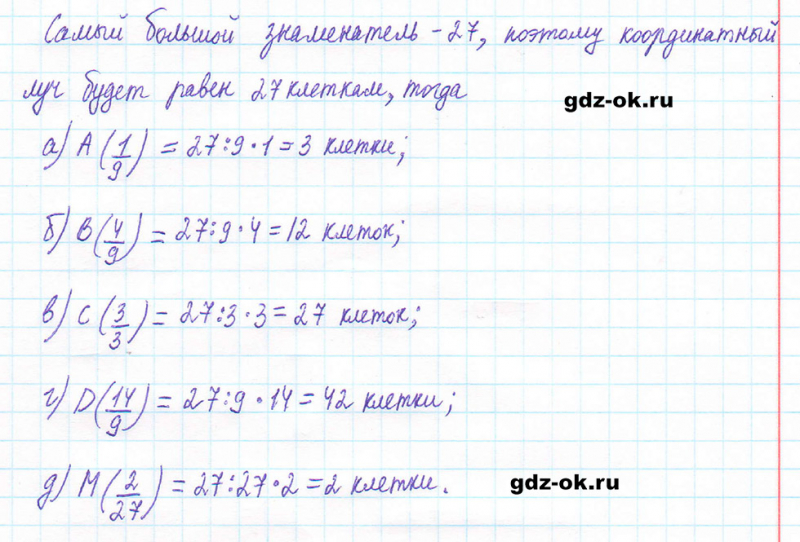 Самый большой знаменатель - 27, поэтому координатный
луч будет равен 27 клеткам, тогда
gdz-ok.ru
а) A (1/9) = 27:9·1=3 клетки;
б) B (4/9) = 27:9·4=12 клеток;
в) C (3/3) = 27:3·3=27 клеток;
г) D (14/9) = 27:9·14=42 клетки;
д) M (2/27) = 27:27·2=2 клетки.
gdz-ok.ru